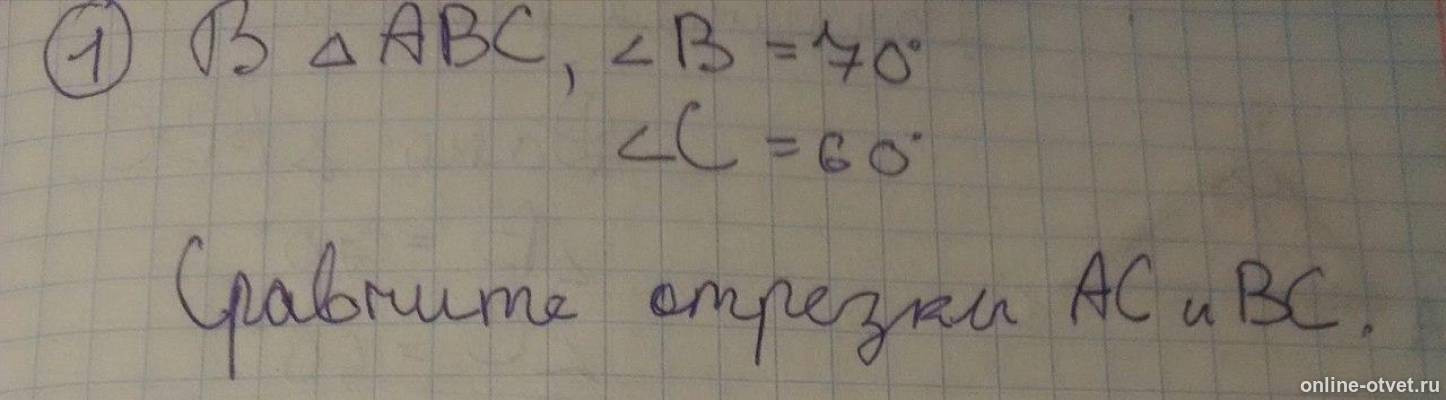 ① В △ ABC, ∠B = 70°
∠C = 60°
Сравните отрезки AC и BC.
online-otvet.ru